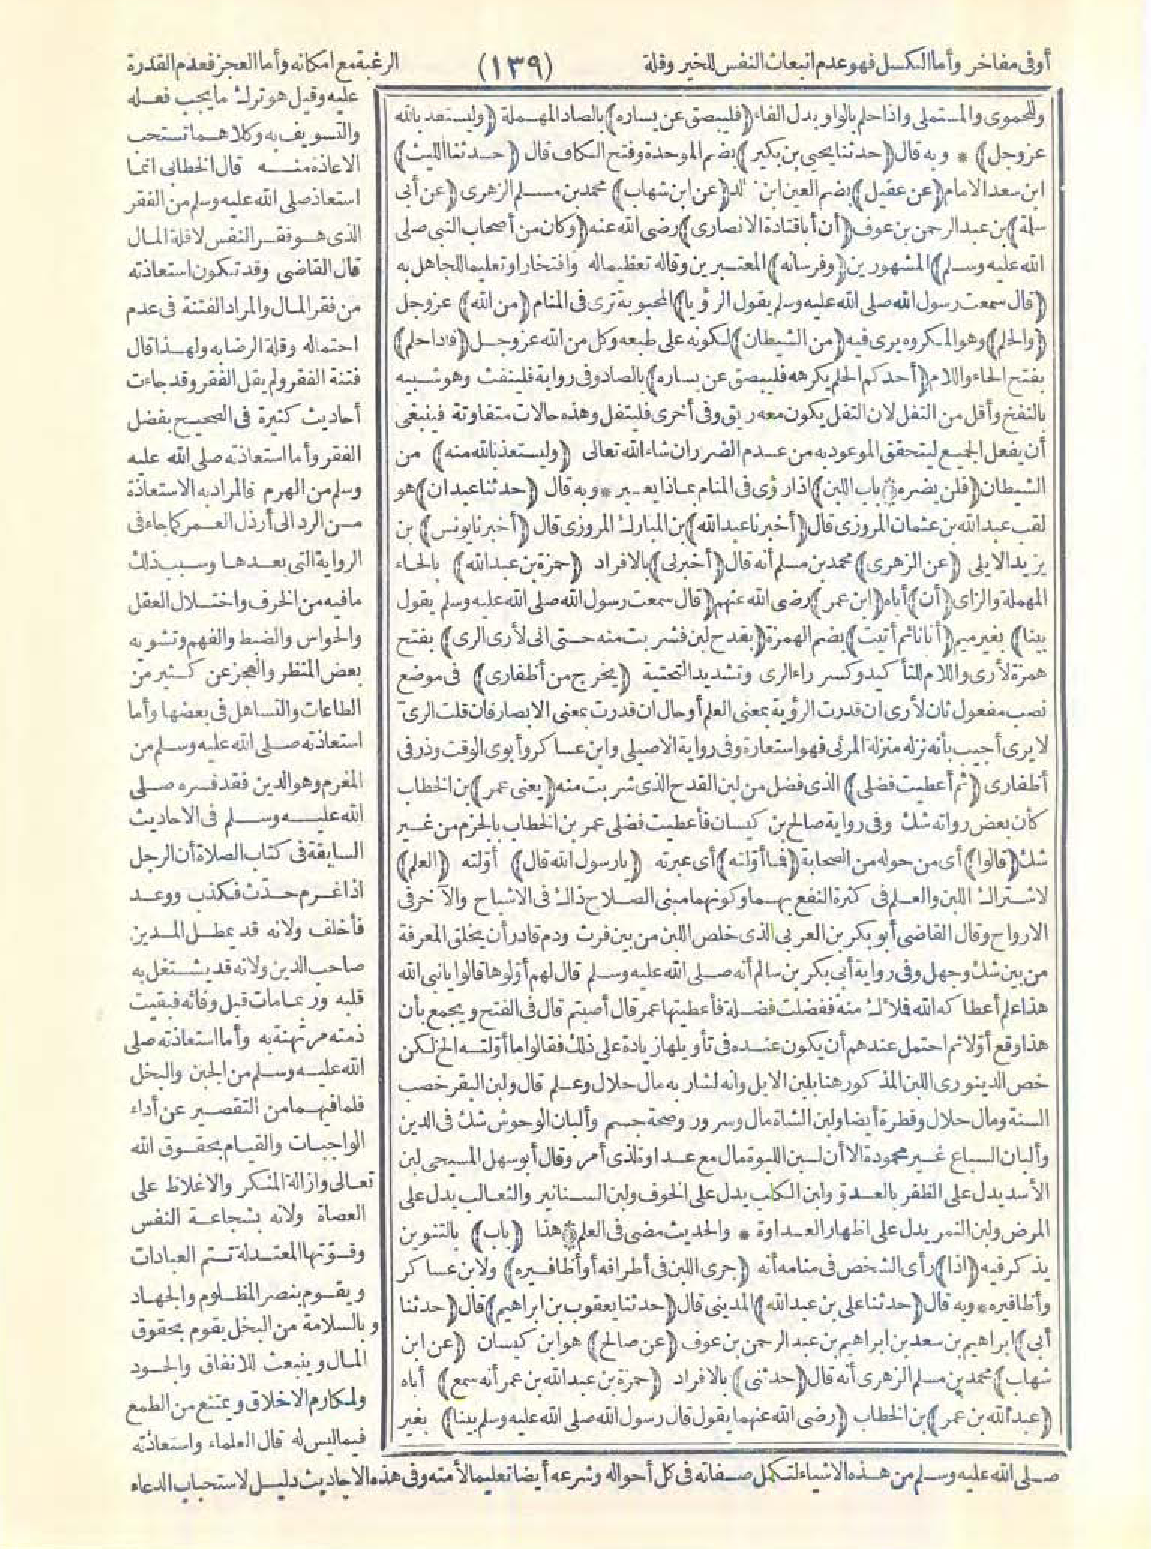 أوفى مفاخر وأما الكسل فهو عدم انبعاث النفس للخير وقلة
(١٣٩)
الرغبة مع امكانه وأما العجز فعدم القدرة
عليه وقيل هو ترك ما يجب فعله
والتسويف به وكلاهما تستحب
الاعاذة منه قال الخطابى انما
استعاذ صلى الله عليه وسلم من الفقر
الذى هو فقر النفس لا قلة المال
قال القاضى وقد تكون استعاذته
من فقر المال والمراد الفتنة فى عدم
احتماله وقلة الرضابه ولهذا قال
فتنة الفقر ولم يقل الفقر وقد جاءت
أحاديث كثيرة فى الصحيح بفضل
الفقر وأما استعاذته صلى الله عليه
وسلم من الهرم فالمراد به الاستعاذة
من الرد الى أرذل العمر كما جاء فى
الرواية التى بعدها وسبب ذلك
ما فيه من الخرف واختلال العقل
والحواس والضبط والفهم وتشويه
بعض المنظر والعجز عن كثير من
الطاعات والتساهل فى بعضها وأما
استعاذته صلى الله عليه وسلم من
المغرم وهو الدين فقد فسره صلى
الله عليه وسلم فى الاحاديث
السابقة فى كتاب الصلاة أن الرجل
اذا غرم حدّث فكذب ووعد
فأخلف ولانه قد يمطل المدين
صاحب الدين ولانه قد يشتغل به
قلبه وربما مات قبل وفائه فبقيت
ذمته مرتهنة به وأما استعاذته صلى
الله عليه وسلم من الجبن والبخل
فلما فيهما من التقصير عن أداء
الواجبات والقيام بحقوق الله
تعالى وازالة المنكر والاغلاظ على
العصاة ولانه بشجاعة النفس
وقوّتها المعتدلة تتم العبادات
ويقوم بنصر المظلوم والجهاد
وبالسلامة من البخل يقوم بحقوق
المال وينبعث للانفاق والجود
ولمكارم الاخلاق ويمتنع من الطمع
فيما ليس له قال العلماء واستعاذته
صلى الله عليه وسلم من هذه الاشياء لتكمل صفاته فى كل أحواله وشرعه أيضا تعليما لأمته وفى هذه الاحاديث دليل لاستحباب الدعاء
وللحموى والمستملى واذا حلم بالواو بدل الفاء (فليبصق عن يساره) بالصاد المهملة (وليستعذ بالله
عزوجل) * وبه قال (حدثنا يحيى بن بكير) بضم الموحدة وفتح الكاف قال (حدثنا الليث)
ابن سعد الامام (عن عقيل) بضم العين ابن خالد (عن ابن شهاب) محمد بن مسلم الزهرى (عن أبى
سلمة) بن عبد الرحمن بن عوف (أن أبا قتادة الانصارى) رضى الله عنه (وكان من أصحاب النبى صلى
الله عليه وسلم) المشهورين (وفرسانه) المعتبرين وقاله تعظيما له وافتخارا وتعليما للجاهل به
(قال سمعت رسول الله صلى الله عليه وسلم يقول الرؤيا) المحبوبة ترى فى المنام (من الله) عزوجل
(والحلم) وهو المكروه يرى فيه (من الشيطان) لكونه على طبعه وكل من الله عزوجل (فاذا حلم)
بفتح الحاء واللام (أحدكم الحلم يكرهه فليبصق عن يساره) بالصاد وفى رواية فلينفث وهو شبيه
بالنفخ وأقل من التفل لان التفل يكون معه ريق وفى أخرى فليتفل وهذه حالات متفاوتة فينبغى
أن يفعل الجميع ليتحقق الموعود به من عدم الضرر ان شاء الله تعالى (وليستعذ بالله منه) من
الشيطان (فلن يضره * باب اللبن) اذا رؤى فى المنام بماذا يعبر * وبه قال (حدثنا عبدان) هو
لقب عبد الله بن عثمان المروزى قال (أخبرنا عبد الله) بن المبارك المروزى قال (أخبرنا يونس) بن
يزيد الايلى (عن الزهرى) محمد بن مسلم أنه قال (أخبرنى) بالافراد (حمزة بن عبد الله) بالحاء
المهملة والزاى (أن) أباه (ابن عمر) رضى الله عنهم (قال سمعت رسول الله صلى الله عليه وسلم يقول
بينا) بغير ميم (أنا نائم أتيت) بضم الهمزة (بقدح لبن فشربت منه حتى انى لأرى الرى) بفتح
همزة لأرى واللام للتأكيد وكسر راء الرى وتشديد التحتية (يخرج من أظفارى) فى موضع
نصب مفعول ثان لأرى ان قدرت الرؤية بمعنى العلم أو حال ان قدرت بمعنى الابصار فان قلت الرىّ
لا يرى أجيب بأنه نزله منزلة المرئى فهو استعارة وفى رواية الاصيلى وابن عساكر وأبوى الوقت وذر فى
أظفارى (ثم أعطيت فضلى) الذى فضل من لبن القدح الذى شربت منه (يعنى عمر) بن الخطاب
كأن بعض رواته شك وفى رواية صالح بن كيسان فأعطيت فضلى عمر بن الخطاب بالجزم من غير
شك (قالوا) أى من حوله من الصحابة (فما أولته) أى عبرته (يا رسول الله قال) أوّلته (العلم)
لاشتراك اللبن والعلم فى كثرة النفع بهما وكونهما مبنى الصلاح ذاك فى الاشباح والآخر فى
الارواح وقال القاضى أبو بكر بن العربى الذى خلص اللبن من بين فرث ودم قادر أن يخلق المعرفة
من بين شك وجهل وفى رواية أبى بكر بن سالم أنه صلى الله عليه وسلم قال لهم أوّلوها قالوا يا نبى الله
هذا علم أعطاكه الله فلأك منه ففضلت فضلة فأعطيتها عمر قال أصبتم قال فى الفتح ويجمع بأن
هذا وقع أوّلا ثم احتمل عندهم أن يكون عنده فى تأويلها زيادة على ذلك فقالوا ما أوّلته الخ لكن
خص الدينورى اللبن المذكور هنا بلبن الابل وانه لشاربه مال حلال وعلم قال ولبن البقر خصب
السنة ومال حلال وفطرة أيضا ولبن الشاة مال وسرور وصحة جسم وألبان الوحوش شك فى الدين
وألبان السباع غير محمودة الا أن لبن اللبوة مال مع عداوة لذى أمر وقال أبو سهل المسيحى لبن
الأسد يدل على الظفر بالعدوّ ولبن الكلب يدل على الخوف ولبن السنانير والثعالب يدل على
المرض ولبن النمر يدل على اظهار العداوة * والحديث مضى فى العلم * هذا (باب) بالتنوين
يذكر فيه (اذا) رأى الشخص فى منامه أنه (جرى اللبن فى أطرافه أو أظافيره) ولابن عساكر
وأظافيره * وبه قال (حدثنا على بن عبد الله) المدينى قال (حدثنا يعقوب بن ابراهيم) قال (حدثنا
أبى) ابراهيم بن سعد بن ابراهيم بن عبد الرحمن بن عوف (عن صالح) هو ابن كيسان (عن ابن
شهاب) محمد بن مسلم الزهرى أنه قال (حدثنى) بالافراد (حمزة بن عبد الله بن عمر أنه سمع) أباه
(عبد الله بن عمر) بن الخطاب (رضى الله عنهما يقول قال رسول الله صلى الله عليه وسلم بينا) بغير